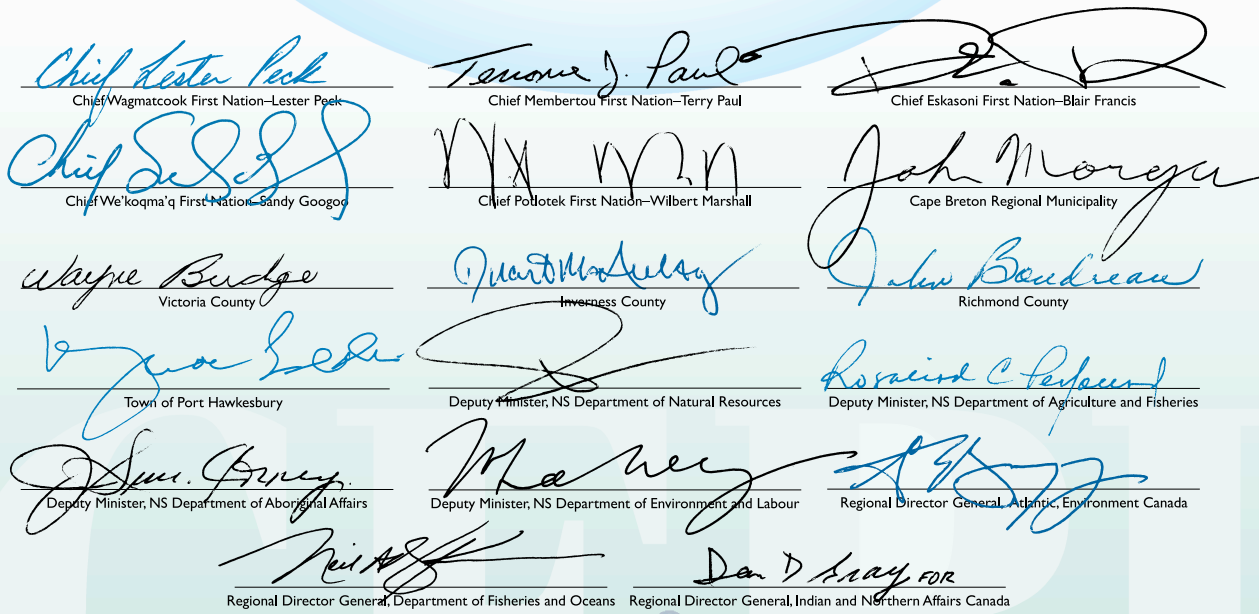 Chief Lester Peck Terrance J. Paul
Chief Wagmatcook First Nation–Lester Peck Chief Membertou First Nation–Terry Paul Chief Eskasoni First Nation–Blair Francis
Chief John Morgan
Chief We'koqma'q First Nation–Sandy Googoo Chief Potlotek First Nation–Wilbert Marshall Cape Breton Regional Municipality
Wayne Budge John Boudreau
Victoria County Inverness County Richmond County
Rosalind C Penfound
Town of Port Hawkesbury Deputy Minister, NS Department of Natural Resources Deputy Minister, NS Department of Agriculture and Fisheries
Deputy Minister, NS Department of Aboriginal Affairs Deputy Minister, NS Department of Environment and Labour Regional Director General, Atlantic, Environment Canada
Neil Dan D Gray FOR
Regional Director General, Department of Fisheries and Oceans Regional Director General, Indian and Northern Affairs Canada